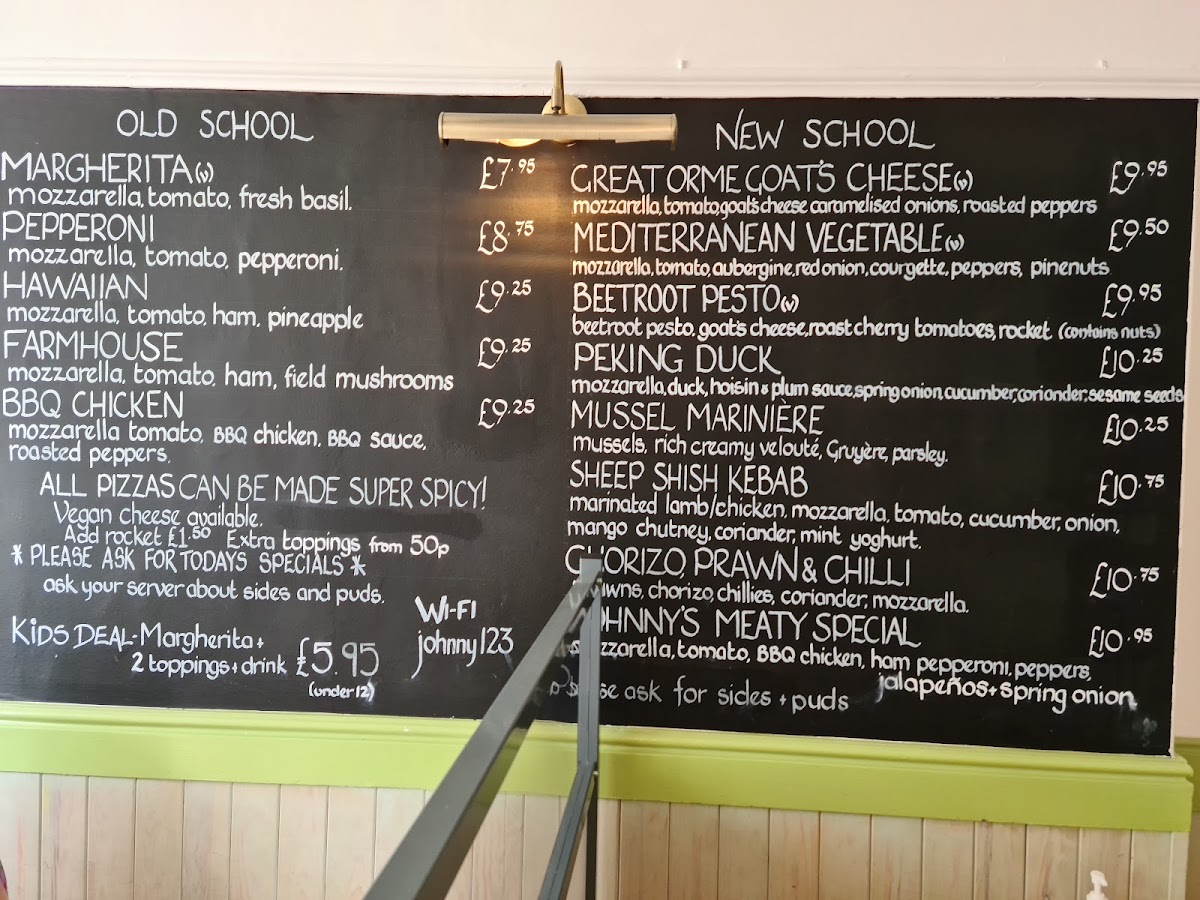 OLD SCHOOL
MARGHERITA (v) £7.95
mozzarella, tomato, fresh basil.
PEPPERONI £8.75
mozzarella, tomato, pepperoni.
HAWAIIAN £9.25
mozzarella, tomato, ham, pineapple
FARMHOUSE £9.25
mozzarella, tomato, ham, field mushrooms
BBQ CHICKEN £9.25
mozzarella tomato, BBQ chicken, BBQ sauce,
roasted peppers.
ALL PIZZAS CAN BE MADE SUPER SPICY!
Vegan cheese available.
Add rocket £1.50 Extra toppings from 50p
* PLEASE ASK FOR TODAYS SPECIALS *
ask your server about sides and puds.
KIDS DEAL - Margherita +
2 toppings + drink £5.95
(under 12)
WI-FI
johnny123
NEW SCHOOL
GREAT ORME GOAT'S CHEESE (v) £9.95
mozzarella, tomato, goat's cheese caramelised onions, roasted peppers
MEDITERRANEAN VEGETABLE (v) £9.50
mozzarella, tomato, aubergine, red onion, courgette, peppers, pinenuts
BEETROOT PESTO (v) £9.95
beetroot pesto, goat's cheese, roast cherry tomatoes, rocket (contains nuts)
PEKING DUCK £10.25
mozzarella, duck, hoisin & plum sauce, spring onion, cucumber, coriander, sesame seeds
MUSSEL MARINIÈRE £10.25
mussels, rich creamy velouté, Gruyère, parsley.
SHEEP SHISH KEBAB £10.75
marinated lamb/chicken, mozzarella, tomato, cucumber, onion,
mango chutney, coriander, mint yoghurt.
CHORIZO, PRAWN & CHILLI £10.75
chorizo, chillies, coriander, mozzarella.
JOHNNY'S MEATY SPECIAL £10.95
mozzarella, tomato, BBQ chicken, ham pepperoni, peppers,
jalapeños + spring onion
ask for sides + puds